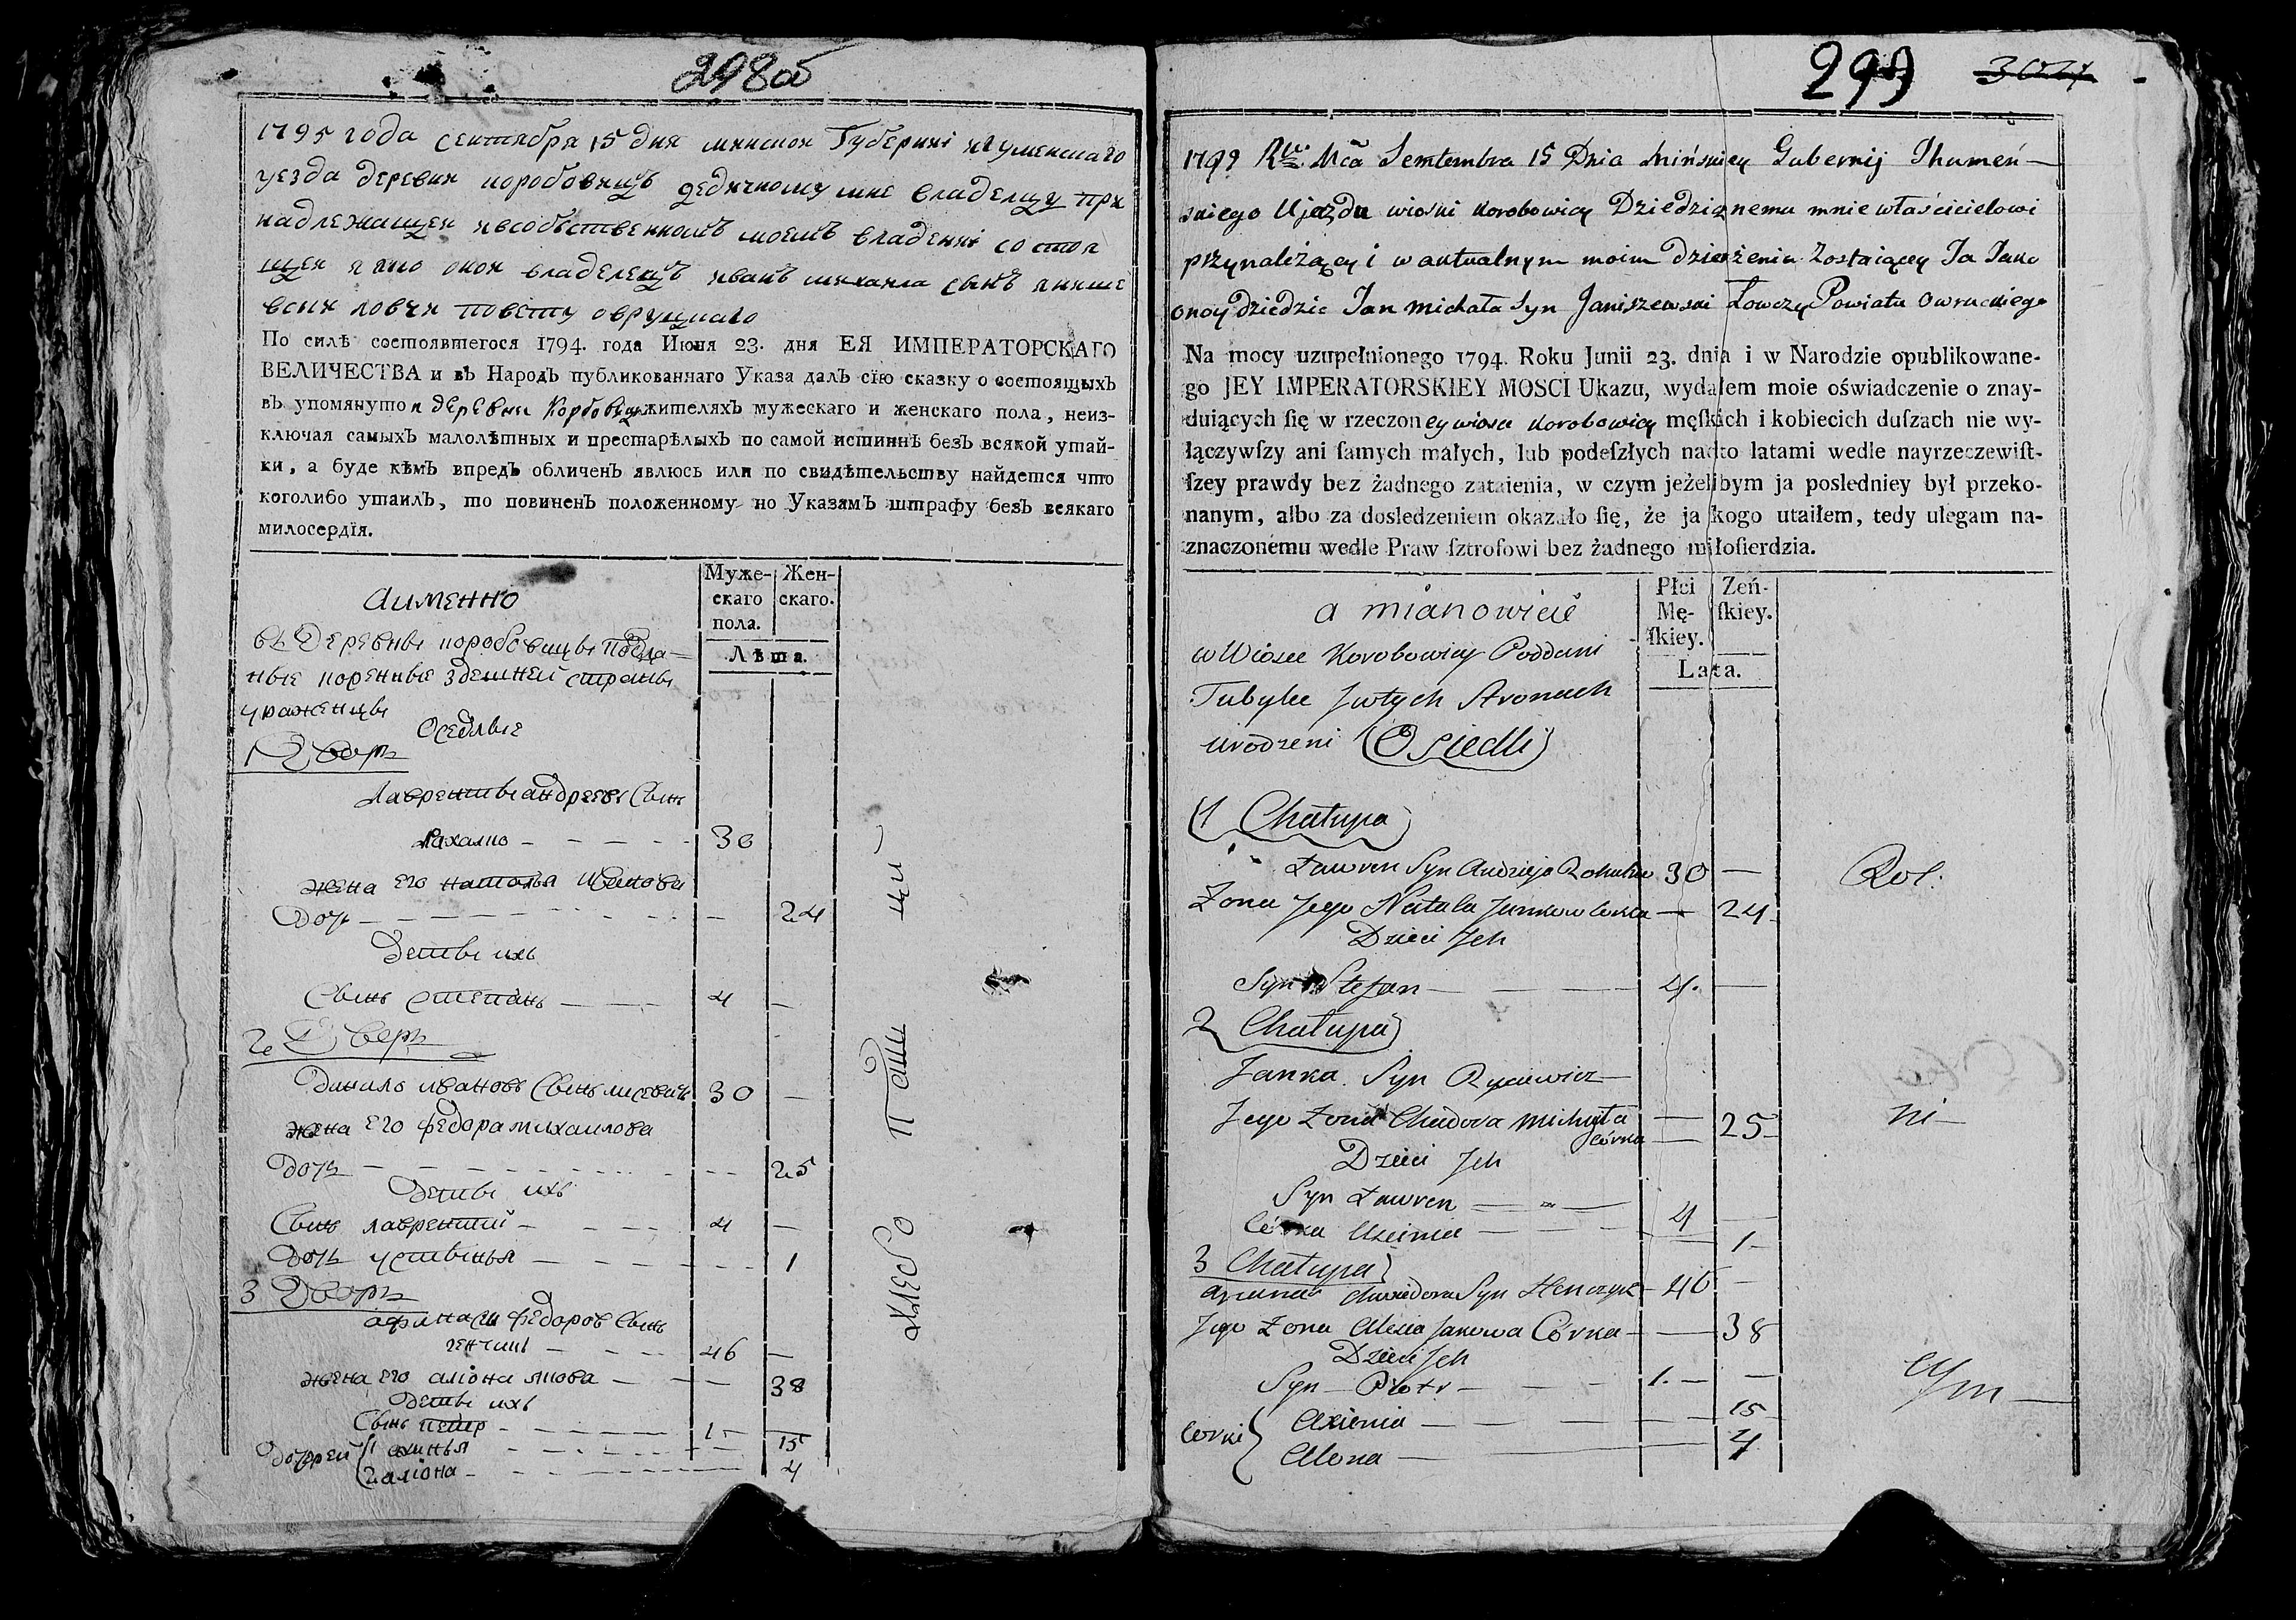 298об
1795 года сентября 15 дня минской Губерниі игуменскаго
уезда деревни коробовицъ дедичному мне владелцу при
надлежащей ивсобственномъ моемъ владениі состоя
щей я яко оной владелецъ иванъ михаила сынъ янише
вский ловчи повету овруцкаго
По силѣ состоявшегося 1794. года Июня 23. дня ЕЯ ИМПЕРАТОРСКАГО
ВЕЛИЧЕСТВА и въ Народъ публикованнаго Указа далъ сїю сказку о состоящыхъ
въ упомянутой деревни Коробовицы жителяхъ мужескаго и женскаго пола, неиз-
ключая самыхъ малолѣтных и престарѣлыхъ по самой истиннѣ безъ всякой утай-
ки, а буде кѣмъ впредъ обличенъ явлюсь или по свидѣтельству найдется что
коголибо утаилъ, то повиненъ положенному но Указамъ штрафу безъ всякаго
милосердїя.
Муже-
скаго
пола.
Жен-
скаго.
Лѣта.
аименно
въ Деревне коробовице Подда-
ные коренные здешней страны
уроженцы
Оседлые
1 Дворъ
Лаврентие андреевъ Сынъ
Рахалко 30
жена его наталья Иванова
Дочь 24
Дети ихъ
Сынъ степанъ 4
2 Дворъ
Данило ивановъ Сынъ лисевичъ 30
жена его федора михаилова
Дочъ 25
Дети ихъ
Сынъ лаврентий 4
Дочъ устинья 1
3 Дворъ
афанаси федоровъ Сынъ
генчикъ 46
жена его аліона якова 38
Дети ихъ
Сынъ петр 1
Дочерей 1 аксинья 15
2 аліона 4
хлебо паши ци
299 
1799 Rku Mca Semtembra 15 Dnia Mińskiey Gubernij Ihumeń-
skiego Ujezdu wioski Korobowicy Dziedzicznemu mnie właścicielowi
przynależący i w aktualnym moim dzierżeniu Zostaiącey Ja Jako
onoy dziedzic Jan michała Syn Janiszewski Łowczy Powiatu Owruckiego
Na mocy uzupełnionego 1794. Roku Junii 23. dnia i w Narodzie opublikowane-
go JEY IMPERATORSKIEY MOSCI Ukazu, wydałem moie oświadczenie o znay-
duiących ſię w rzeczoney wiosce Korobowicy męſkich i kobiecich duſzach nie wy-
łączywſzy ani ſamych małych, lub podeſzłych nadto latami wedle nayrzeczewiſt-
ſzey prawdy bez żadnego zataienia, w czym jeżelibym ja posledniey był przeko-
nanym, albo za dosledzeniem okazało ſię, że ja kogo utaiłem, tedy ulegam na-
znaczonemu wedle Praw ſztrofowi bez żadnego miłoſierdzia.
Płci
Mę-
ſkiey.
Zeń-
ſkiey.
Lata.
a mianowicie
w Wiosce Korobowicy Poddani
Tubylce Jwtych Stronach
urodzeni Osiedli
1 Chałupa
Ławren Syn Andrzeja Rohalko 30
Zona Jego Natala Jankowa Corka 24
Dzieci Jch
Syn Stefan 4.
2 Chałupa
Janka Syn
Jego Zona Chwdora Michała
córka 25
Dzieci Jch
Syn Ławren 4
Córka 1
3 Chałupa
Chwiedora Syn Henczyk 46
Jego Zona Alexia Jakowa Córka 38
Dzieci Jch
Syn Piotr 1.
Corki Axienia 15
Alona 4
Rol.
ni